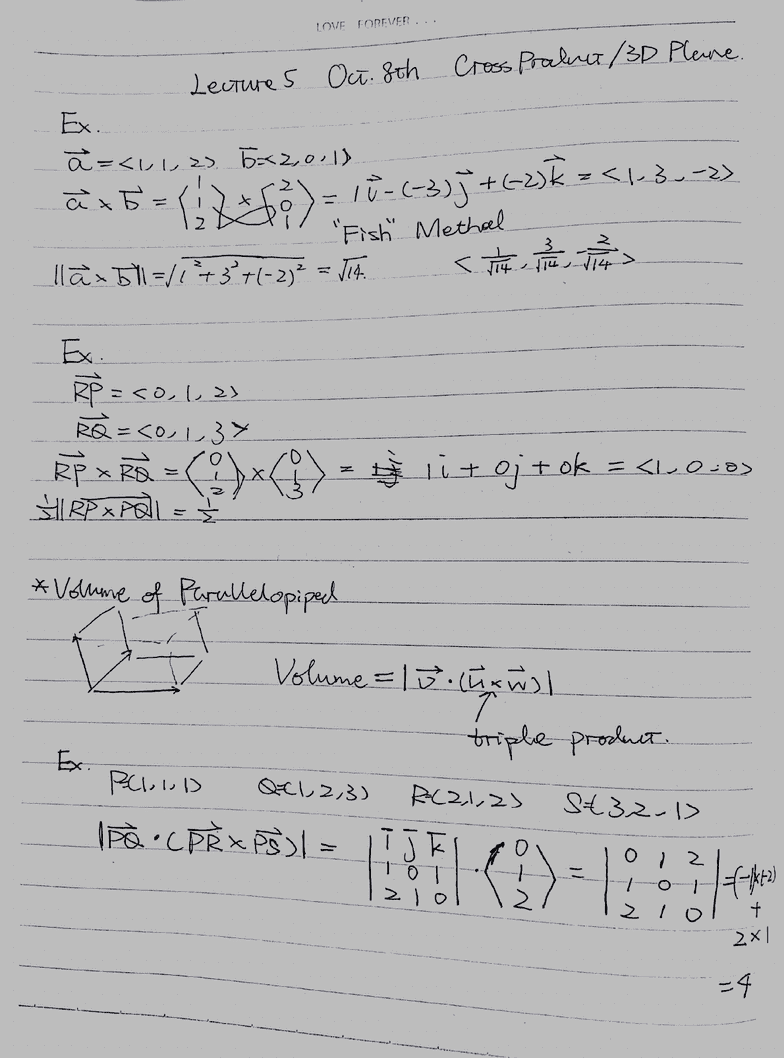 LOVE FOREVER...
Lecture 5 Oct. 8th Cross Product / 3D Plane.
Ex.
a⃗ = <1, 1, 2> b⃗=<2, 0, 1>
a⃗ × b⃗ = ⟨1 1 2⟩ × ⟨2 0 1⟩ = 1i⃗ - (-3)j⃗ + (-2)k⃗ = <1, 3, -2>
"Fish" Method
||a⃗ × b⃗|| = √(1² + 3² + (-2)²) = √14. < 1/√14, 3/√14, -2/√14 >
Ex.
RP⃗ = <0, 1, 2>
RQ⃗ = <0, 1, 3>
RP⃗ × RQ⃗ = ⟨0 1 2⟩ × ⟨0 1 3⟩ = 1i + 0j + 0k = <1, 0, 0>
½||RP × PQ|| = ½
*Volume of Parallelopiped
Volume = |v⃗ · (u⃗ × w⃗)|
triple product.
Ex.
P=(1, 1, 1) Q=(1, 2, 3) R=(2, 1, 2) S=(3, 2, 1)
|PQ⃗ · (PR⃗ × PS⃗)| = |i j k| · ⟨0 1 2⟩ = |0 1 2| = (-1)×(-2)
|1 0 1| |1 0 1| +
|2 1 0| |2 1 0| 2×1
= 4